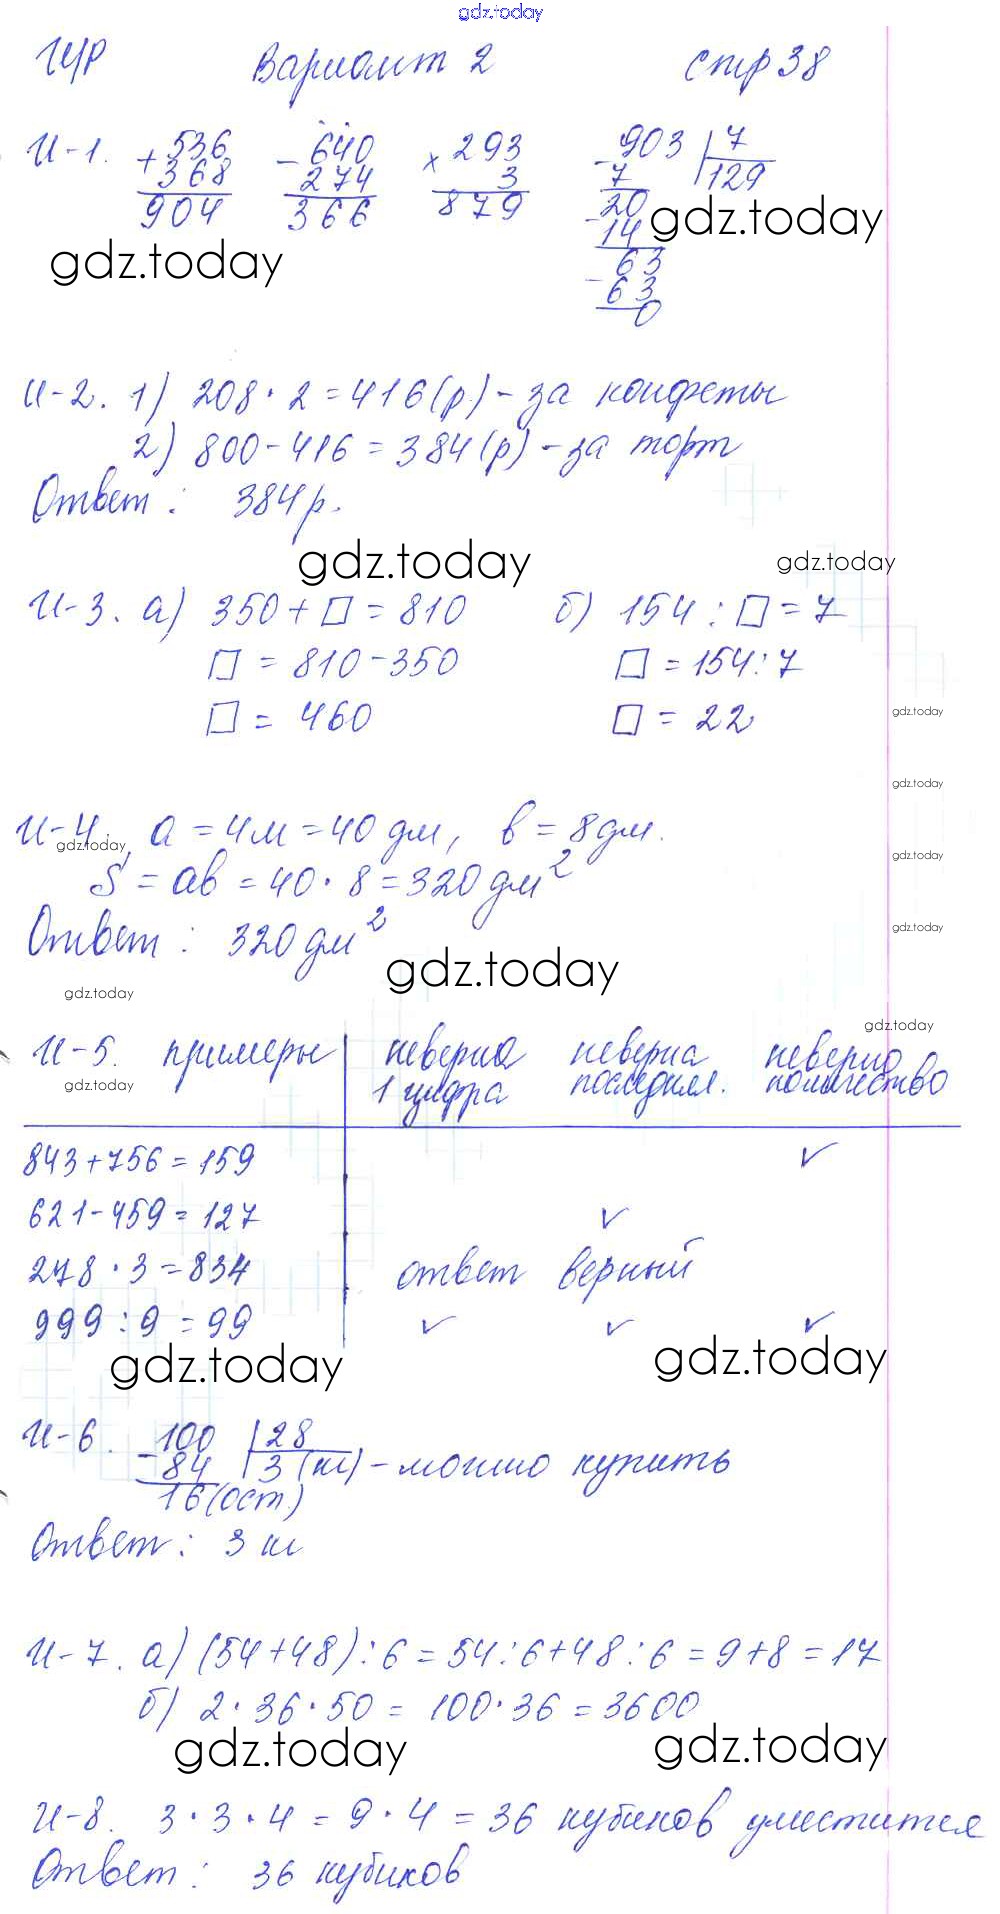 gdz.today
ИЧР Вариант 2 стр 38
И-1. + 536 - 640 × 293 - 903 | 7
368 274 3 7 129
904 366 879 - 20
gdz.today
14
gdz.today
63
- 63
0
И-2. 1) 208 · 2 = 416 (р.) - за конфеты
2) 800 - 416 = 384 (р) - за торт
Ответ: 384 р.
gdz.today gdz.today
И-3. а) 350 + □ = 810 б) 154 : □ = 7
□ = 810 - 350 □ = 154 : 7
□ = 460 □ = 22
gdz.today
gdz.today
И-4. а = 4м = 40 дм, в = 8 дм.
gdz.today
gdz.today
S = ав = 40 · 8 = 320 дм²
Ответ: 320 дм²
gdz.today
gdz.today
gdz.today
gdz.today
И-5. примеры | неверна неверна неверно
1 цифра последняя. количество
gdz.today
843 + 756 = 159 ✓
621 - 459 = 127 ✓
278 · 3 = 834 ответ верный
999 : 9 = 99 ✓ ✓ ✓
gdz.today gdz.today
И-6. - 100 | 28
84 3 (ш) - можно купить
16 (ост.)
Ответ: 3 ш
И-7. а) (54 + 48) : 6 = 54 : 6 + 48 : 6 = 9 + 8 = 17
б) 2 · 36 · 50 = 100 · 36 = 3600
gdz.today gdz.today
И-8. 3 · 3 · 4 = 9 · 4 = 36 кубиков уместится
Ответ: 36 кубиков